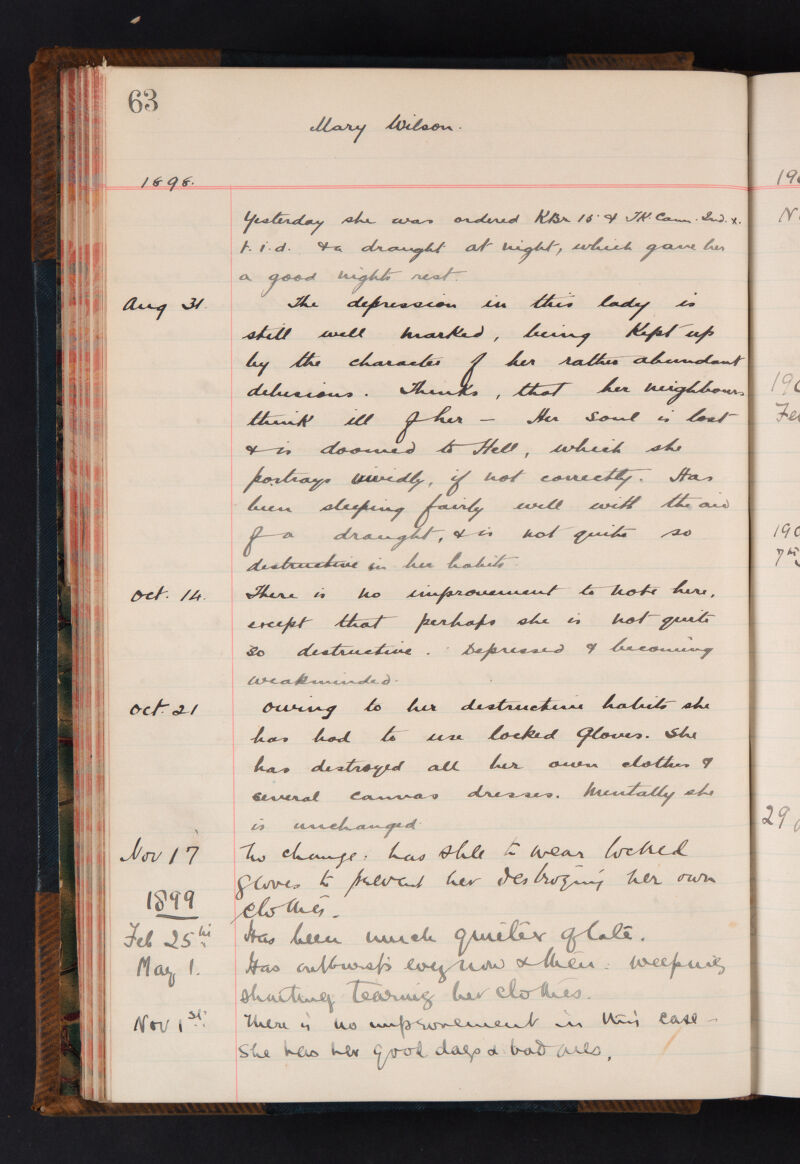 63
Mary Wilson.
1898.
Yesterday she was ordered KBr 15 & Tr. Cann. Ind. x.
t.i.d. & a draught at night, which gave her
a good nights rest.
Aug 31. The depression in this lady is
still well marked, being kept up
by the character of her rather abundant
delusions. Thinks, that her neighbours
think ill of her — Her soul is lost
& is doomed to Hell, which she
portrays vividly, if not correctly. Has
been sleeping fairly well with the aid
of a draught, & is not quite so
destructive in her habits.
Oct. 14. There is no improvement to note here,
except that perhaps she is not quite
so destructive. Depressed & becoming
weakminded.
Oct. 21 Owing to her destructive habits she
has had to use locked gloves. She
has destroyed all her own clothes &
several canvas dresses. Mentally she
is unchanged.
Nov 17 No change. has still to wear locked
gloves to prevent her destroying her own
clothes.
1899
Feb 25th Has been much quieter of late.
May 1. Has outbursts every now & then. weeping
shouting tearing her clothes.
Nov 1st. There is no improvement in this case –
She has her good days & bad ones.
29